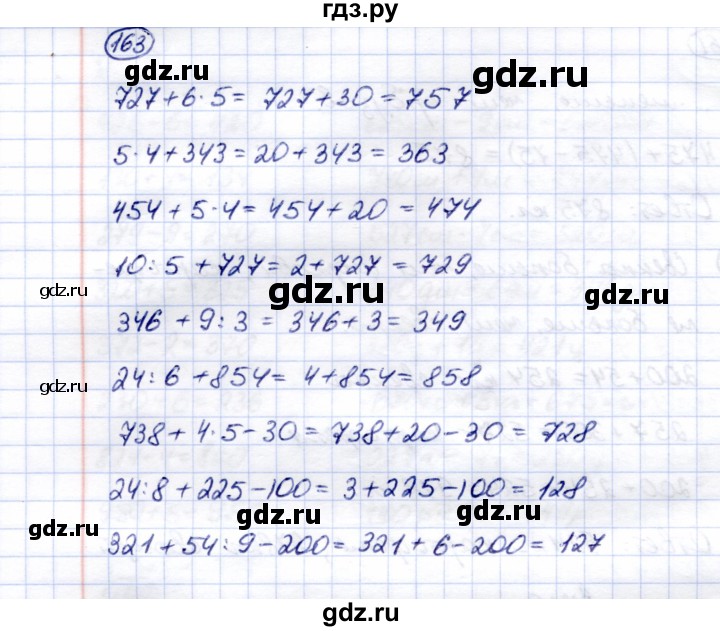 гдз.ру
163
gdz.ru
gdz.ru
727+6·5= 727+30=757
5·4+343=20+343=363
454+5·4=454+20=474
10:5+727=2+727=729
gdz.ru
gdz.ru
gdz.ru
346+9:3=346+3=349
24:6+854=4+854=858
gdz.ru
738+4·5-30=738+20-30=728
24:8+225-100=3+225-100=128
gdz.ru
gdz.ru
321+54:9-200=321+6-200=127
gdz.ru